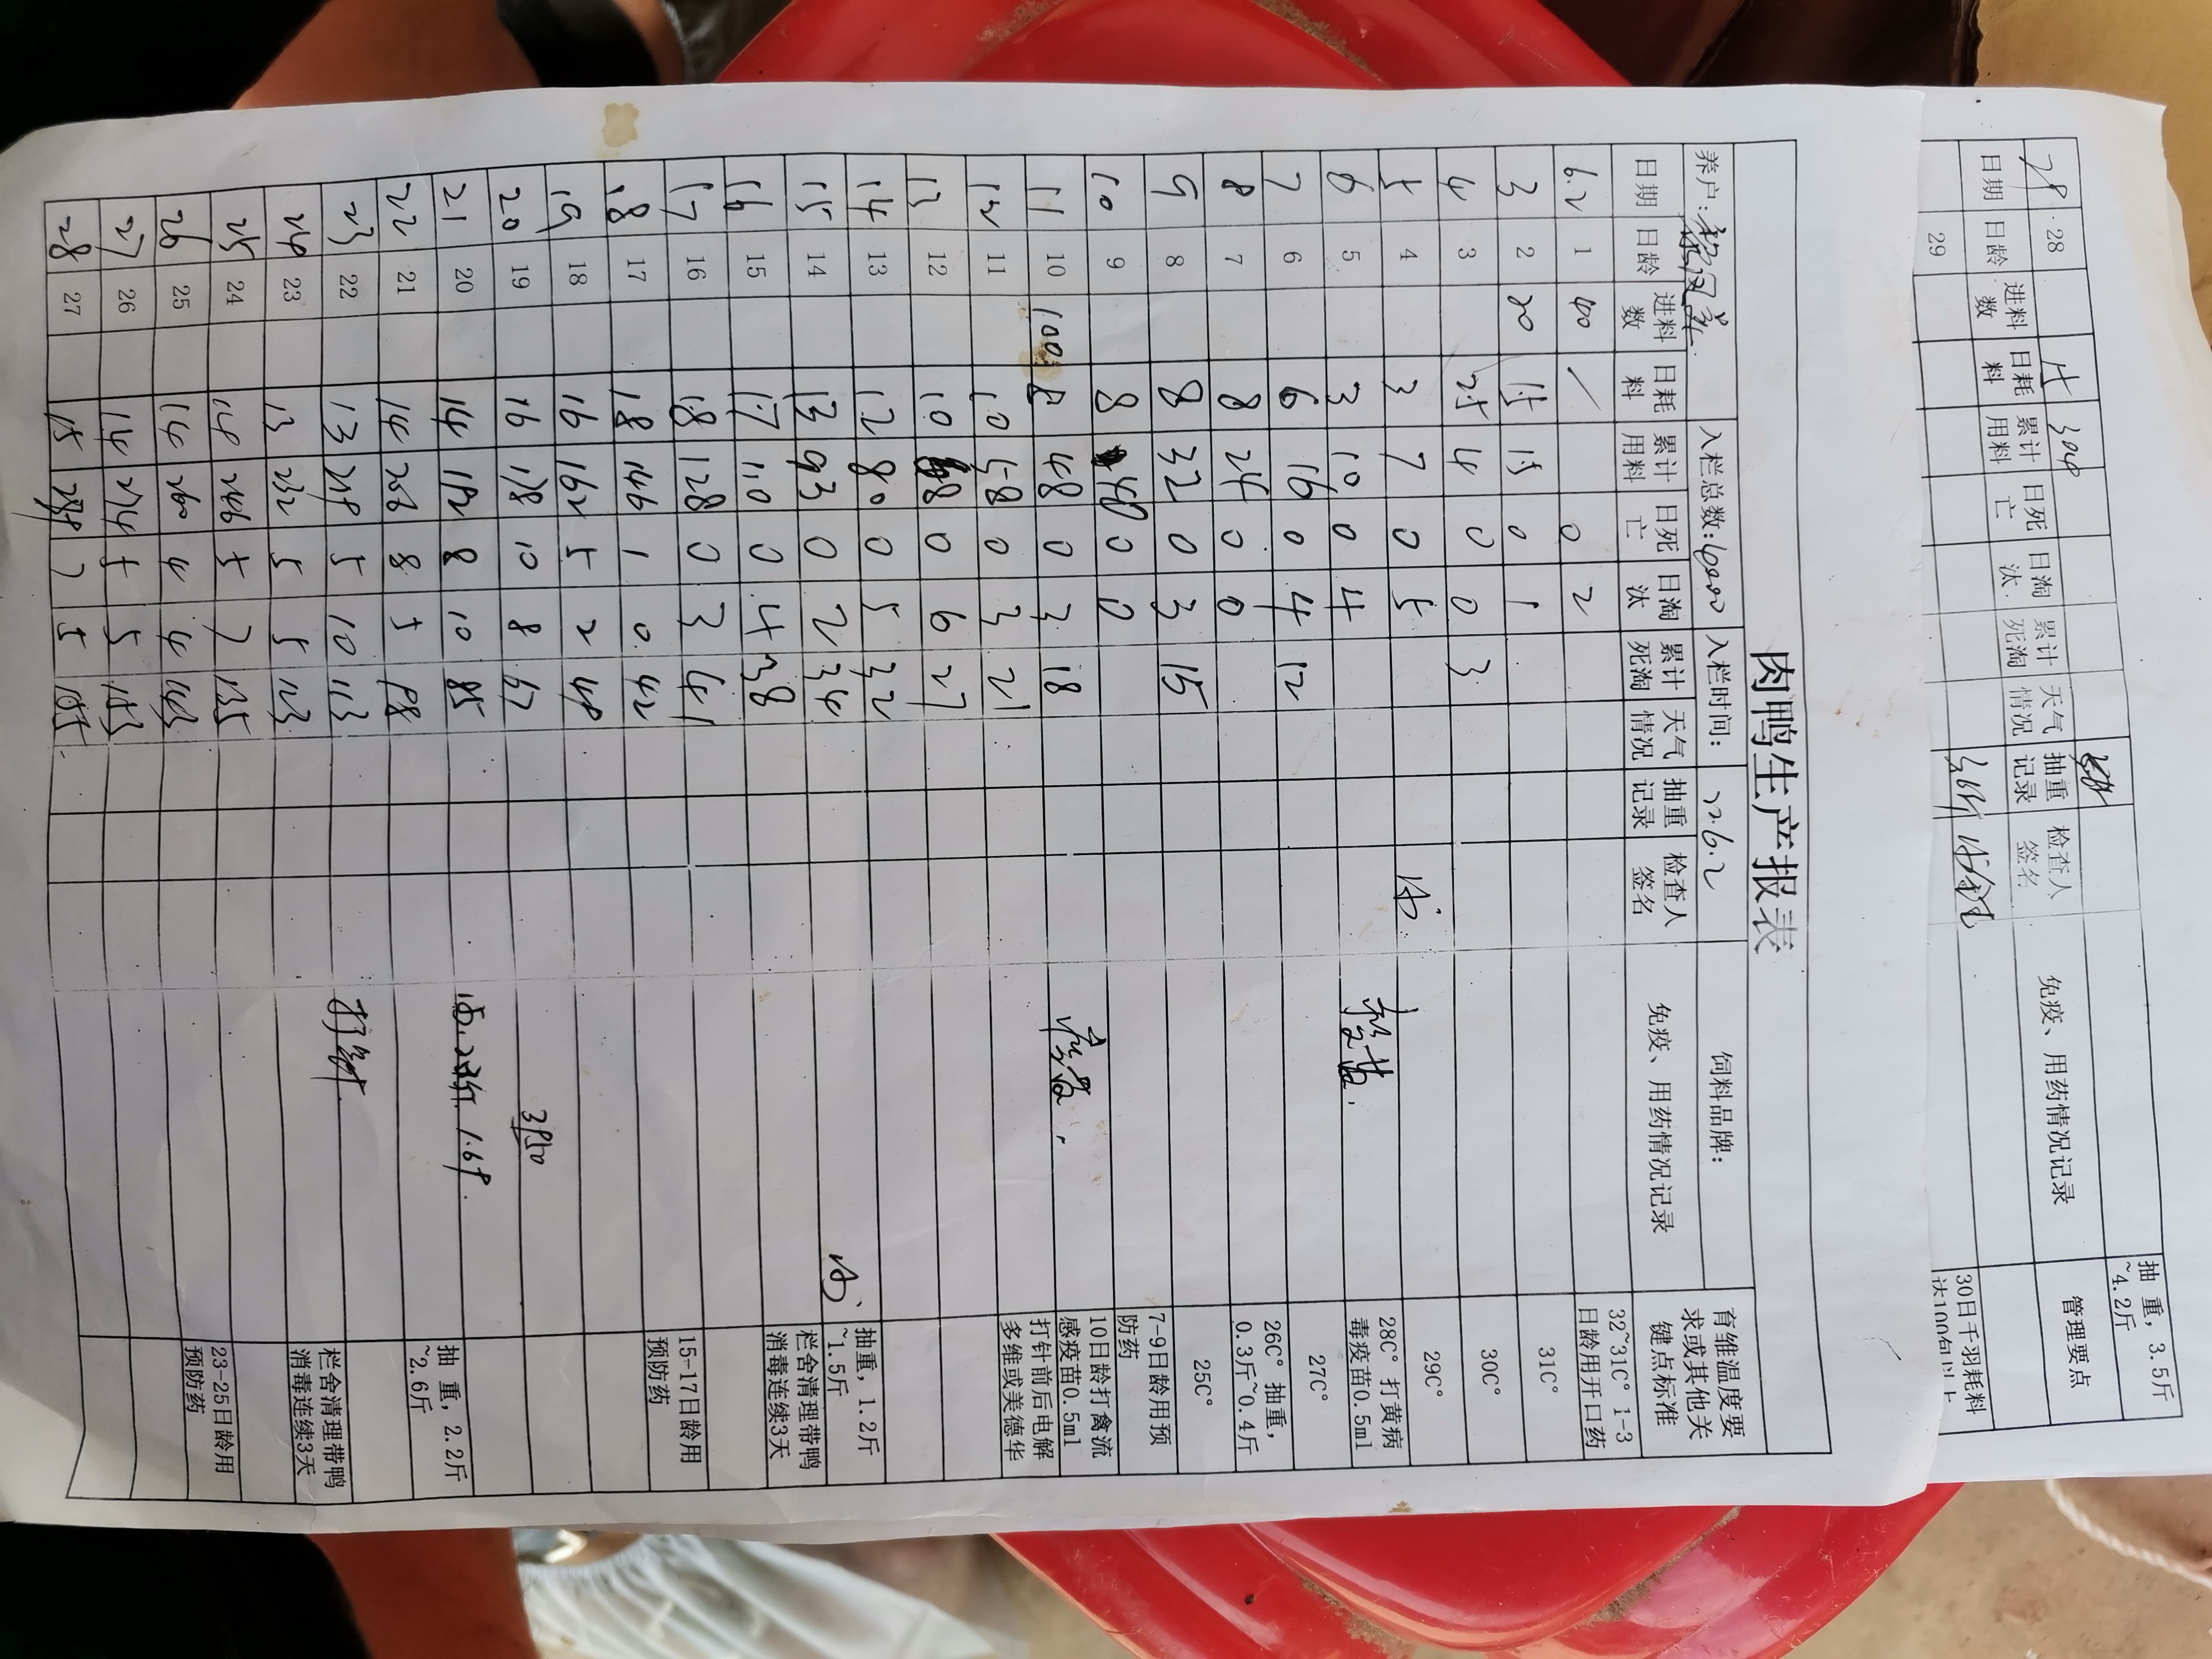 肉鸭生产报表
养户: 入栏总数: 6000 入栏时间: 22.6.2 饲料品牌:
日期 日龄 进料数 日耗料 累计用料 日死亡 日淘汰 累计死淘 天气情况 抽重记录 检查人签名 免疫、用药情况记录 育雏温度要求或其他关键点标准
6.2 1 40 / 0 2 32~31C° 1-3日龄用开口药
3 2 20 15 15 0 1 31C°
4 3 25 4 0 0 3 30C°
5 4 3 7 0 5 29C°
6 5 3 10 0 4 28C° 打黄病毒疫苗0.5ml
7 6 6 16 0 4 12 27C°
8 7 8 24 0 0 26C° 抽重，0.3斤~0.4斤
9 8 8 32 0 3 15 25C°
10 9 8 40 0 0 7-9日龄用预防药
11 10 100 8 48 0 3 18 10日龄打禽流感疫苗0.5ml
12 11 10 58 0 3 21 打针前后电解多维或美德华
13 12 10 68 0 6 27
14 13 12 80 0 5 32
15 14 13 93 0 2 34 抽重，1.2斤~1.5斤
16 15 17 110 0 4 38 栏舍清理带鸭消毒连续3天
17 16 18 128 0 3 41
18 17 18 146 1 0 42 15-17日龄用预防药
19 18 16 162 5 2 49
20 19 16 178 10 8 67
21 20 14 192 8 10 85
22 21 14 206 8 5 98 抽 重，2.2斤~2.6斤
23 22 13 219 5 10 113 打针
24 23 13 232 5 5 123 栏舍清理带鸭消毒连续3天
25 24 14 246 5 7 135
26 25 14 260 4 4 143 23-25日龄用预防药
27 26 14 274 5 5 153
28 27 15 289 7 5 165
29 28 15 304 抽 重，3.5斤~4.2斤
日期 日龄 进料数 日耗料 累计用料 日死亡 日淘汰 累计死淘 天气情况 抽重记录 检查人签名 免疫、用药情况记录 管理要点
29 30日千羽耗料